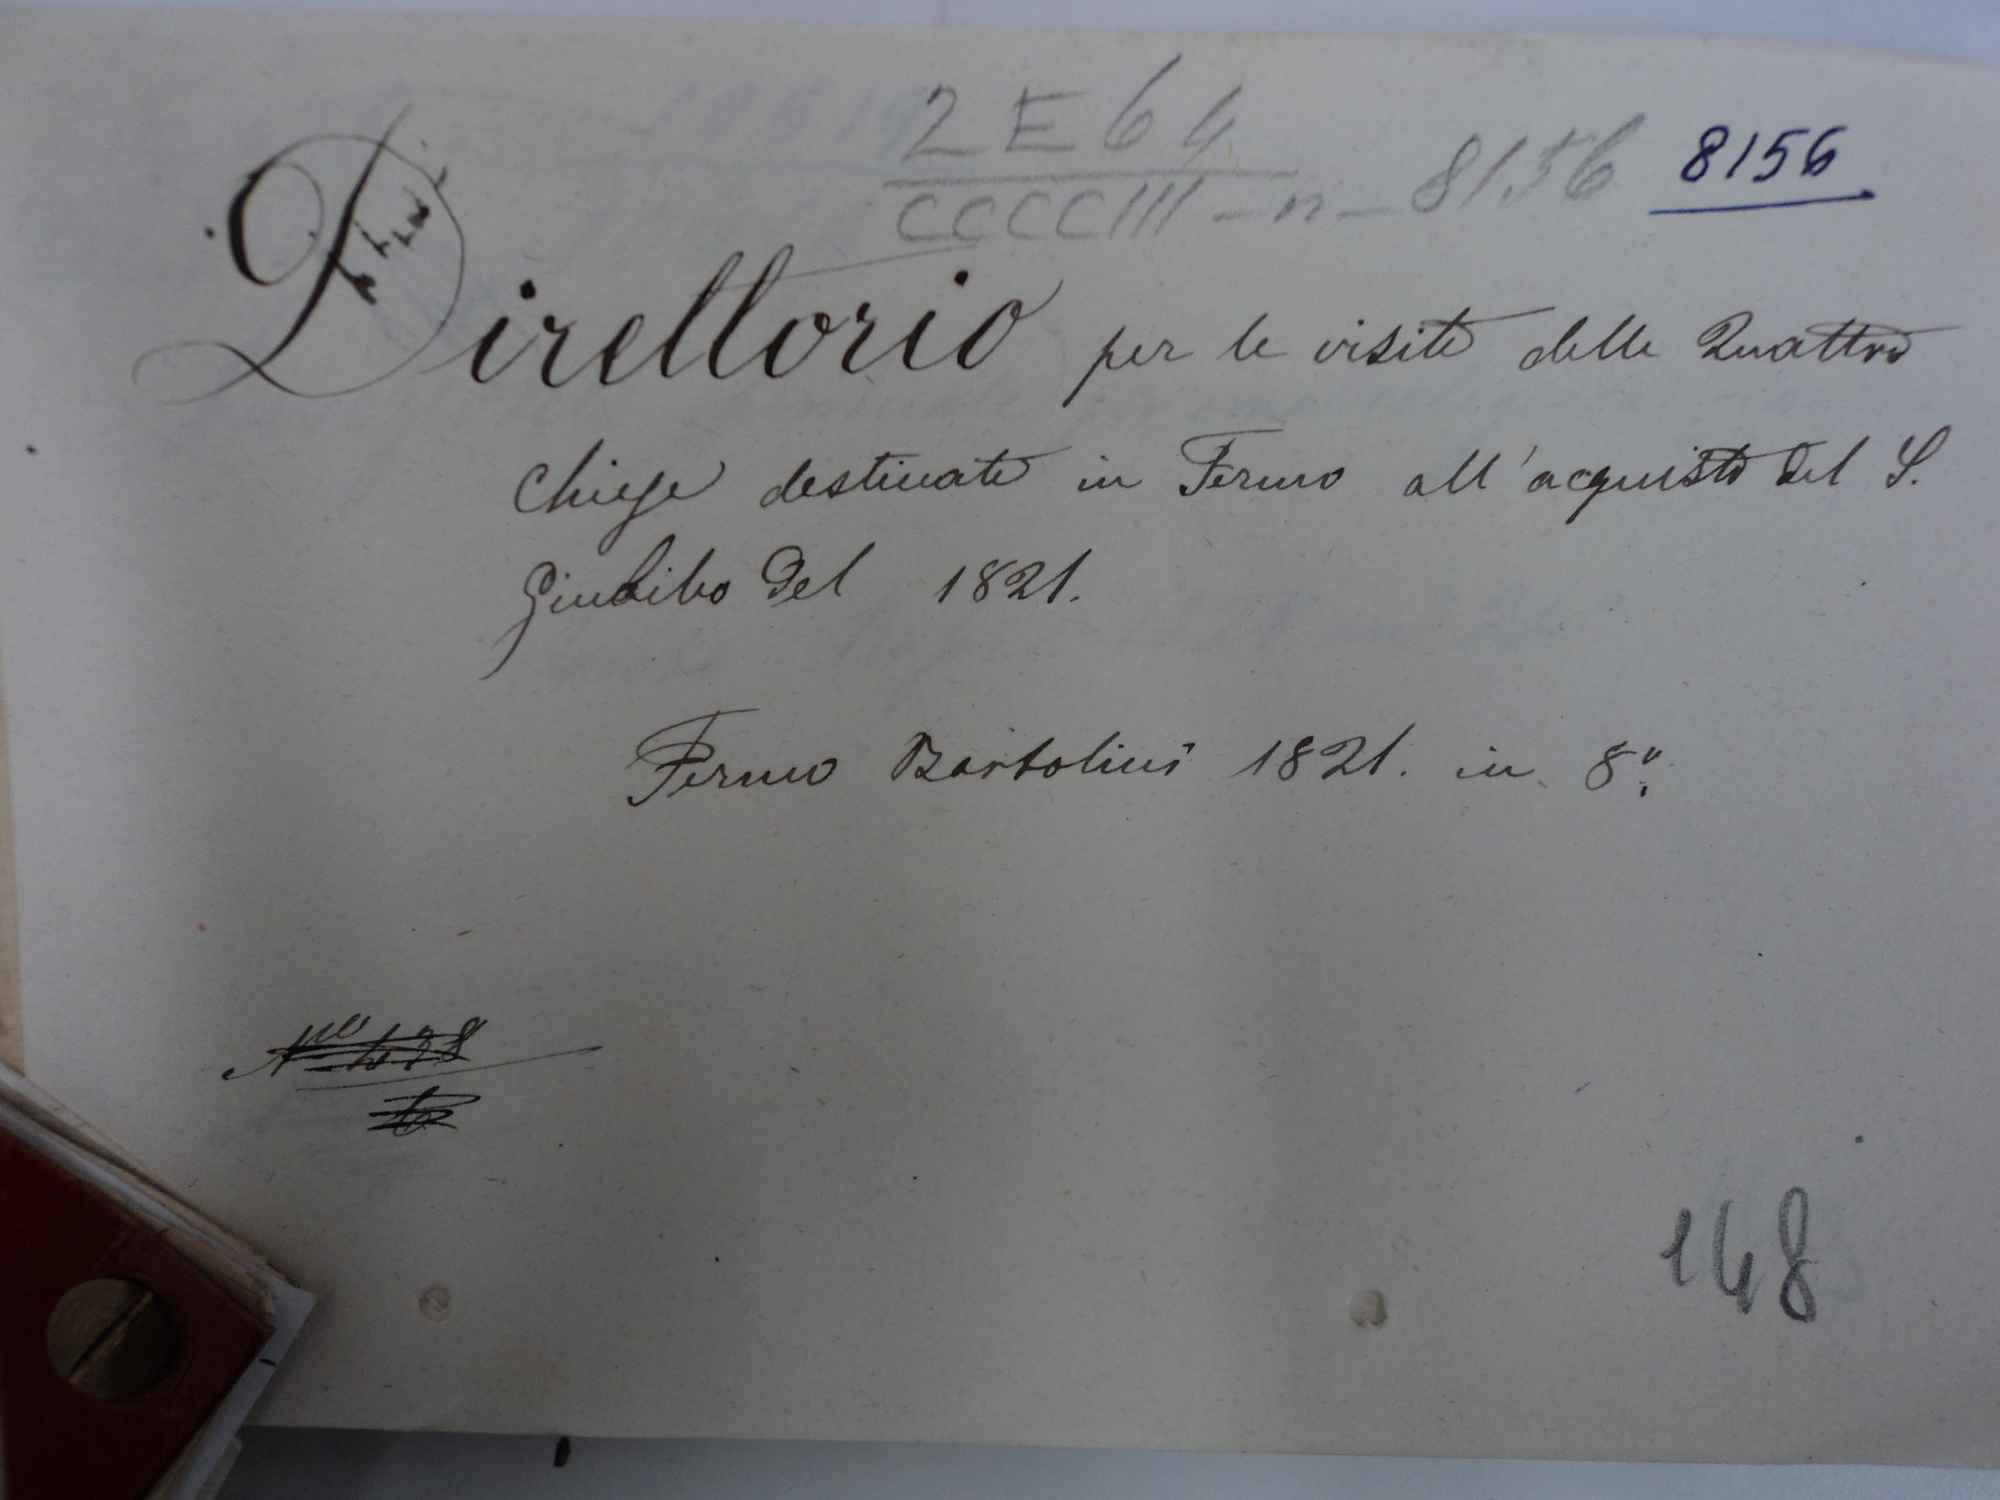 2 E 64
CCCCIII - n - 8156 8156
Direttorio per le visite delle Quattro
Chiese destinate in Fermo all'acquisto del S.
Giubileo del 1821.
Fermo Bartolini 1821. in 8°.
148